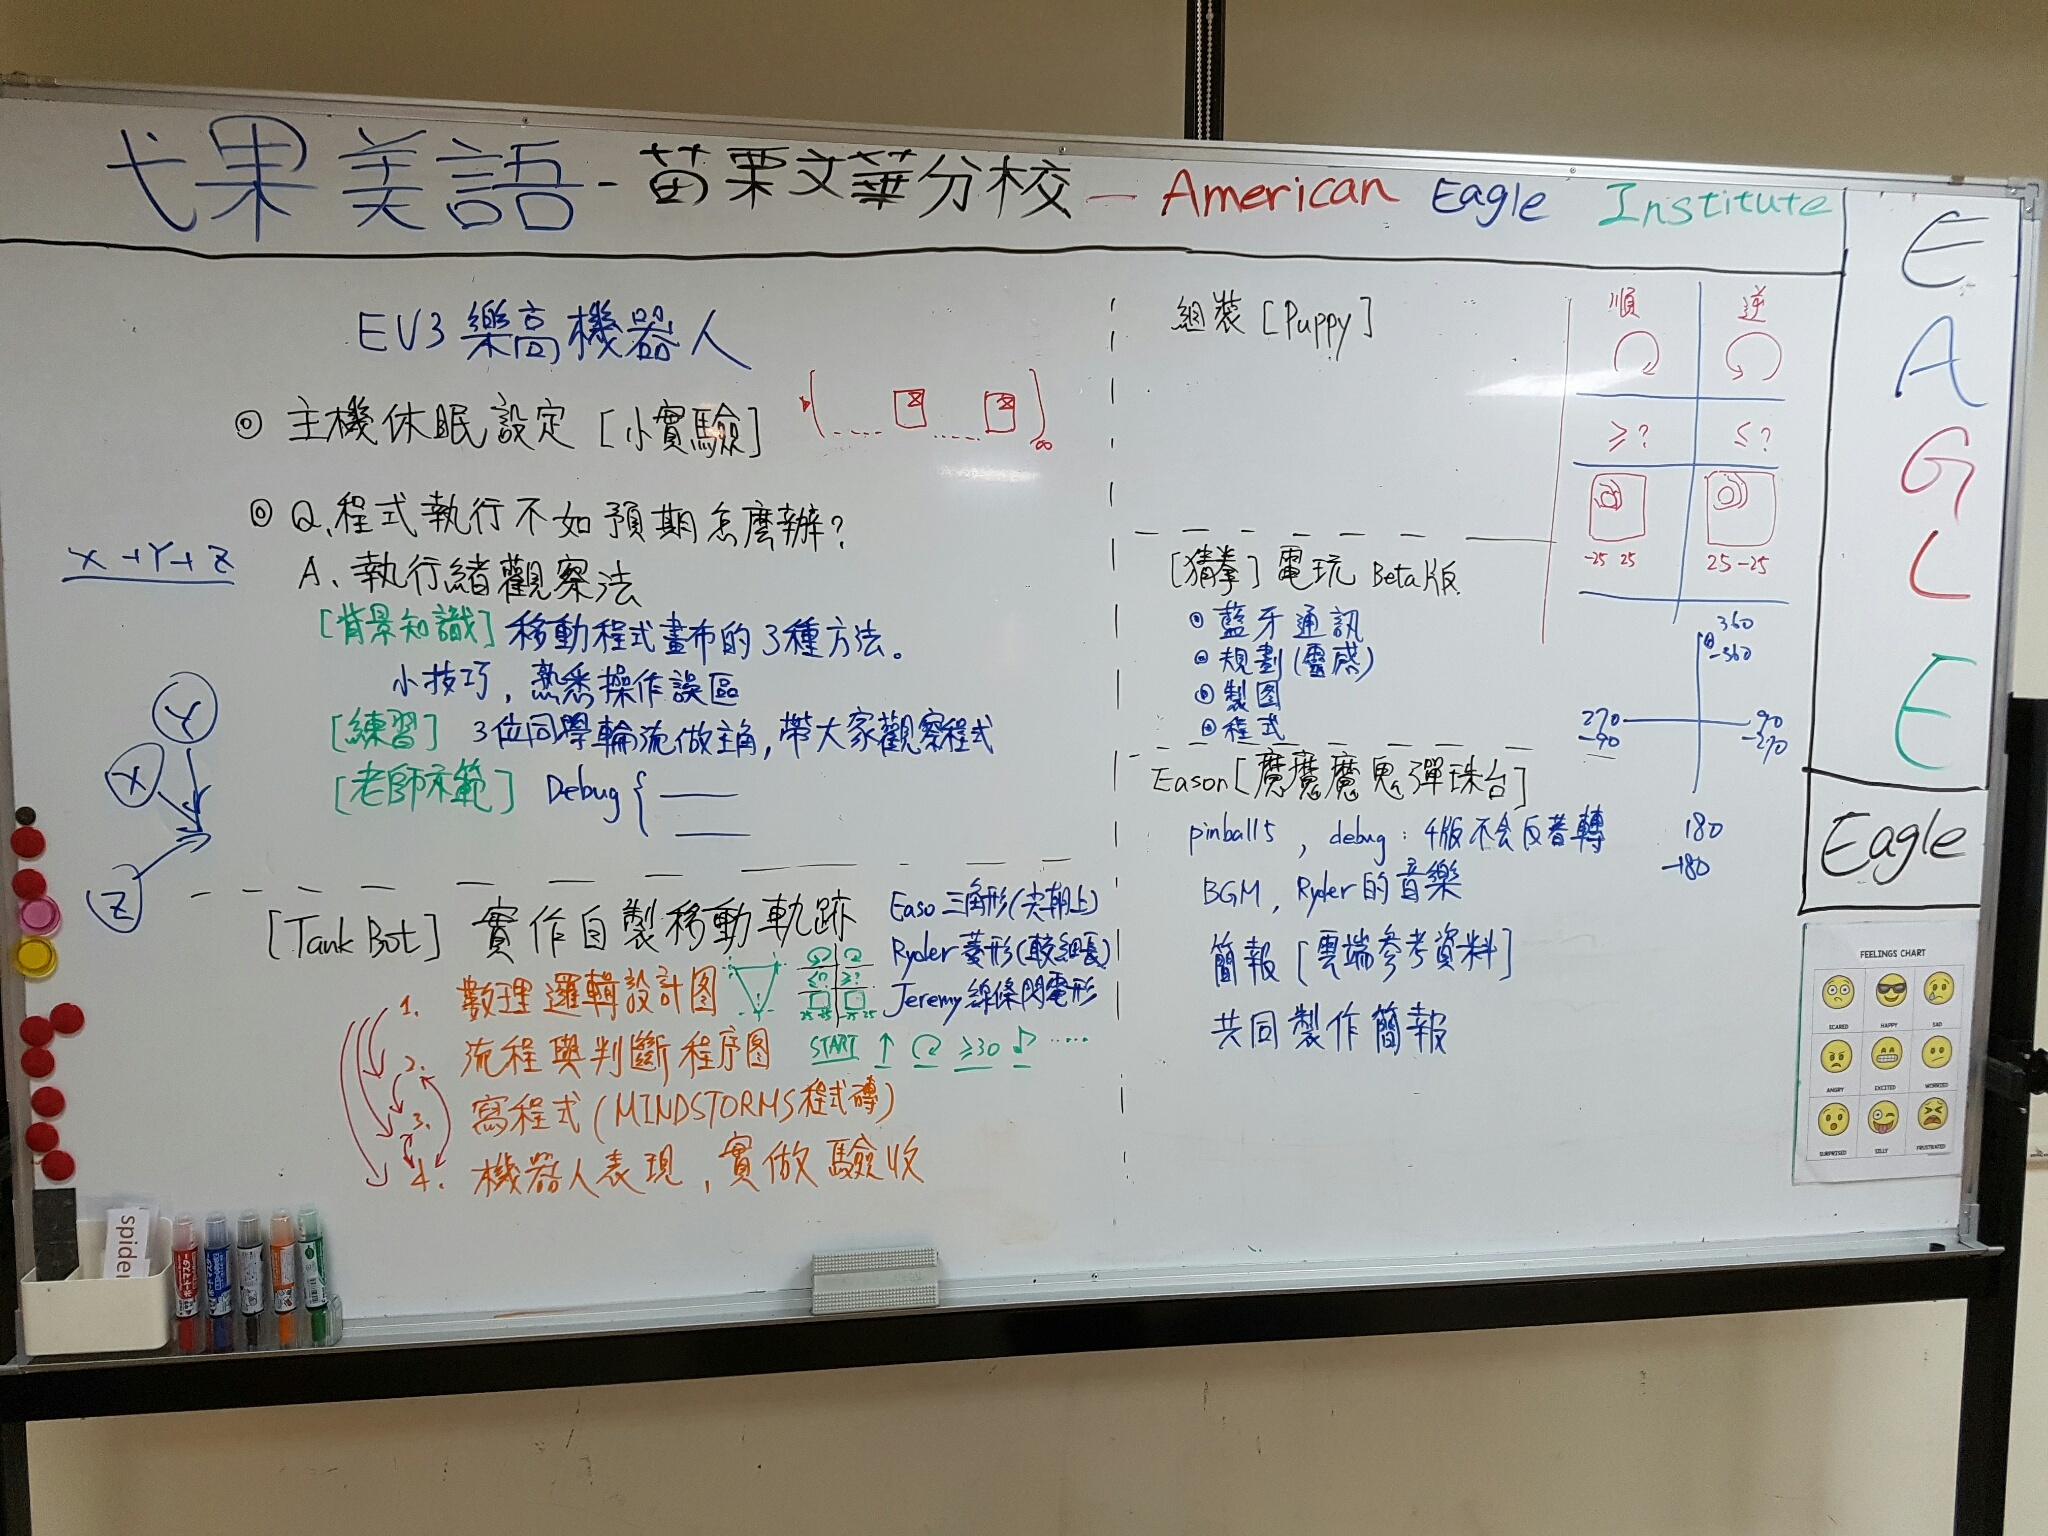 弋果美語-苗栗文華分校-American Eagle Institute
EAGLE
Eagle
EV3 樂高機器人
◎ 主機休眠設定 [小實驗]
∞
◎ Q.程式執行不如預期怎麼辦?
A.執行緒觀察法
[背景知識] 移動程式畫布的3種方法。
小技巧,熟悉操作誤區
[練習] 3位同學輪流做主角,帶大家觀察程式
[老師示範] Debug {
X+Y+Z
Y
X
Z
[Tank Bot] 實作自製移動軌跡
Easo 三角形(尖朝上)
Ryder 菱形(較細長)
Jeremy 線條閃電形
1. 數理邏輯設計图
≤? ≥?
25 -25 -25 25
2. 流程與判斷程序图
START ↑ ≥30 ♪ ……
3. 寫程式(MINDSTORMS程式磚)
4. 機器人表現,實做驗收
組裝 [Puppy]
順 逆
≥? ≤?
-25 25 25 -25
[猜拳] 電玩 Beta版
◎ 藍牙通訊
◎ 規劃(靈感)
◎ 製图
◎ 程式
360
0 -360
270 90
-90 -270
180
-180
Eason [魔魔魔鬼彈珠台]
pinball5, debug: 4版不会反著轉
BGM, Ryder的音樂
簡報 [雲端參考資料]
共同製作簡報
FEELINGS CHART
SCARED HAPPY SAD
ANGRY EXCITED WORRIED
SURPRISED SILLY FRUSTRATED
spider